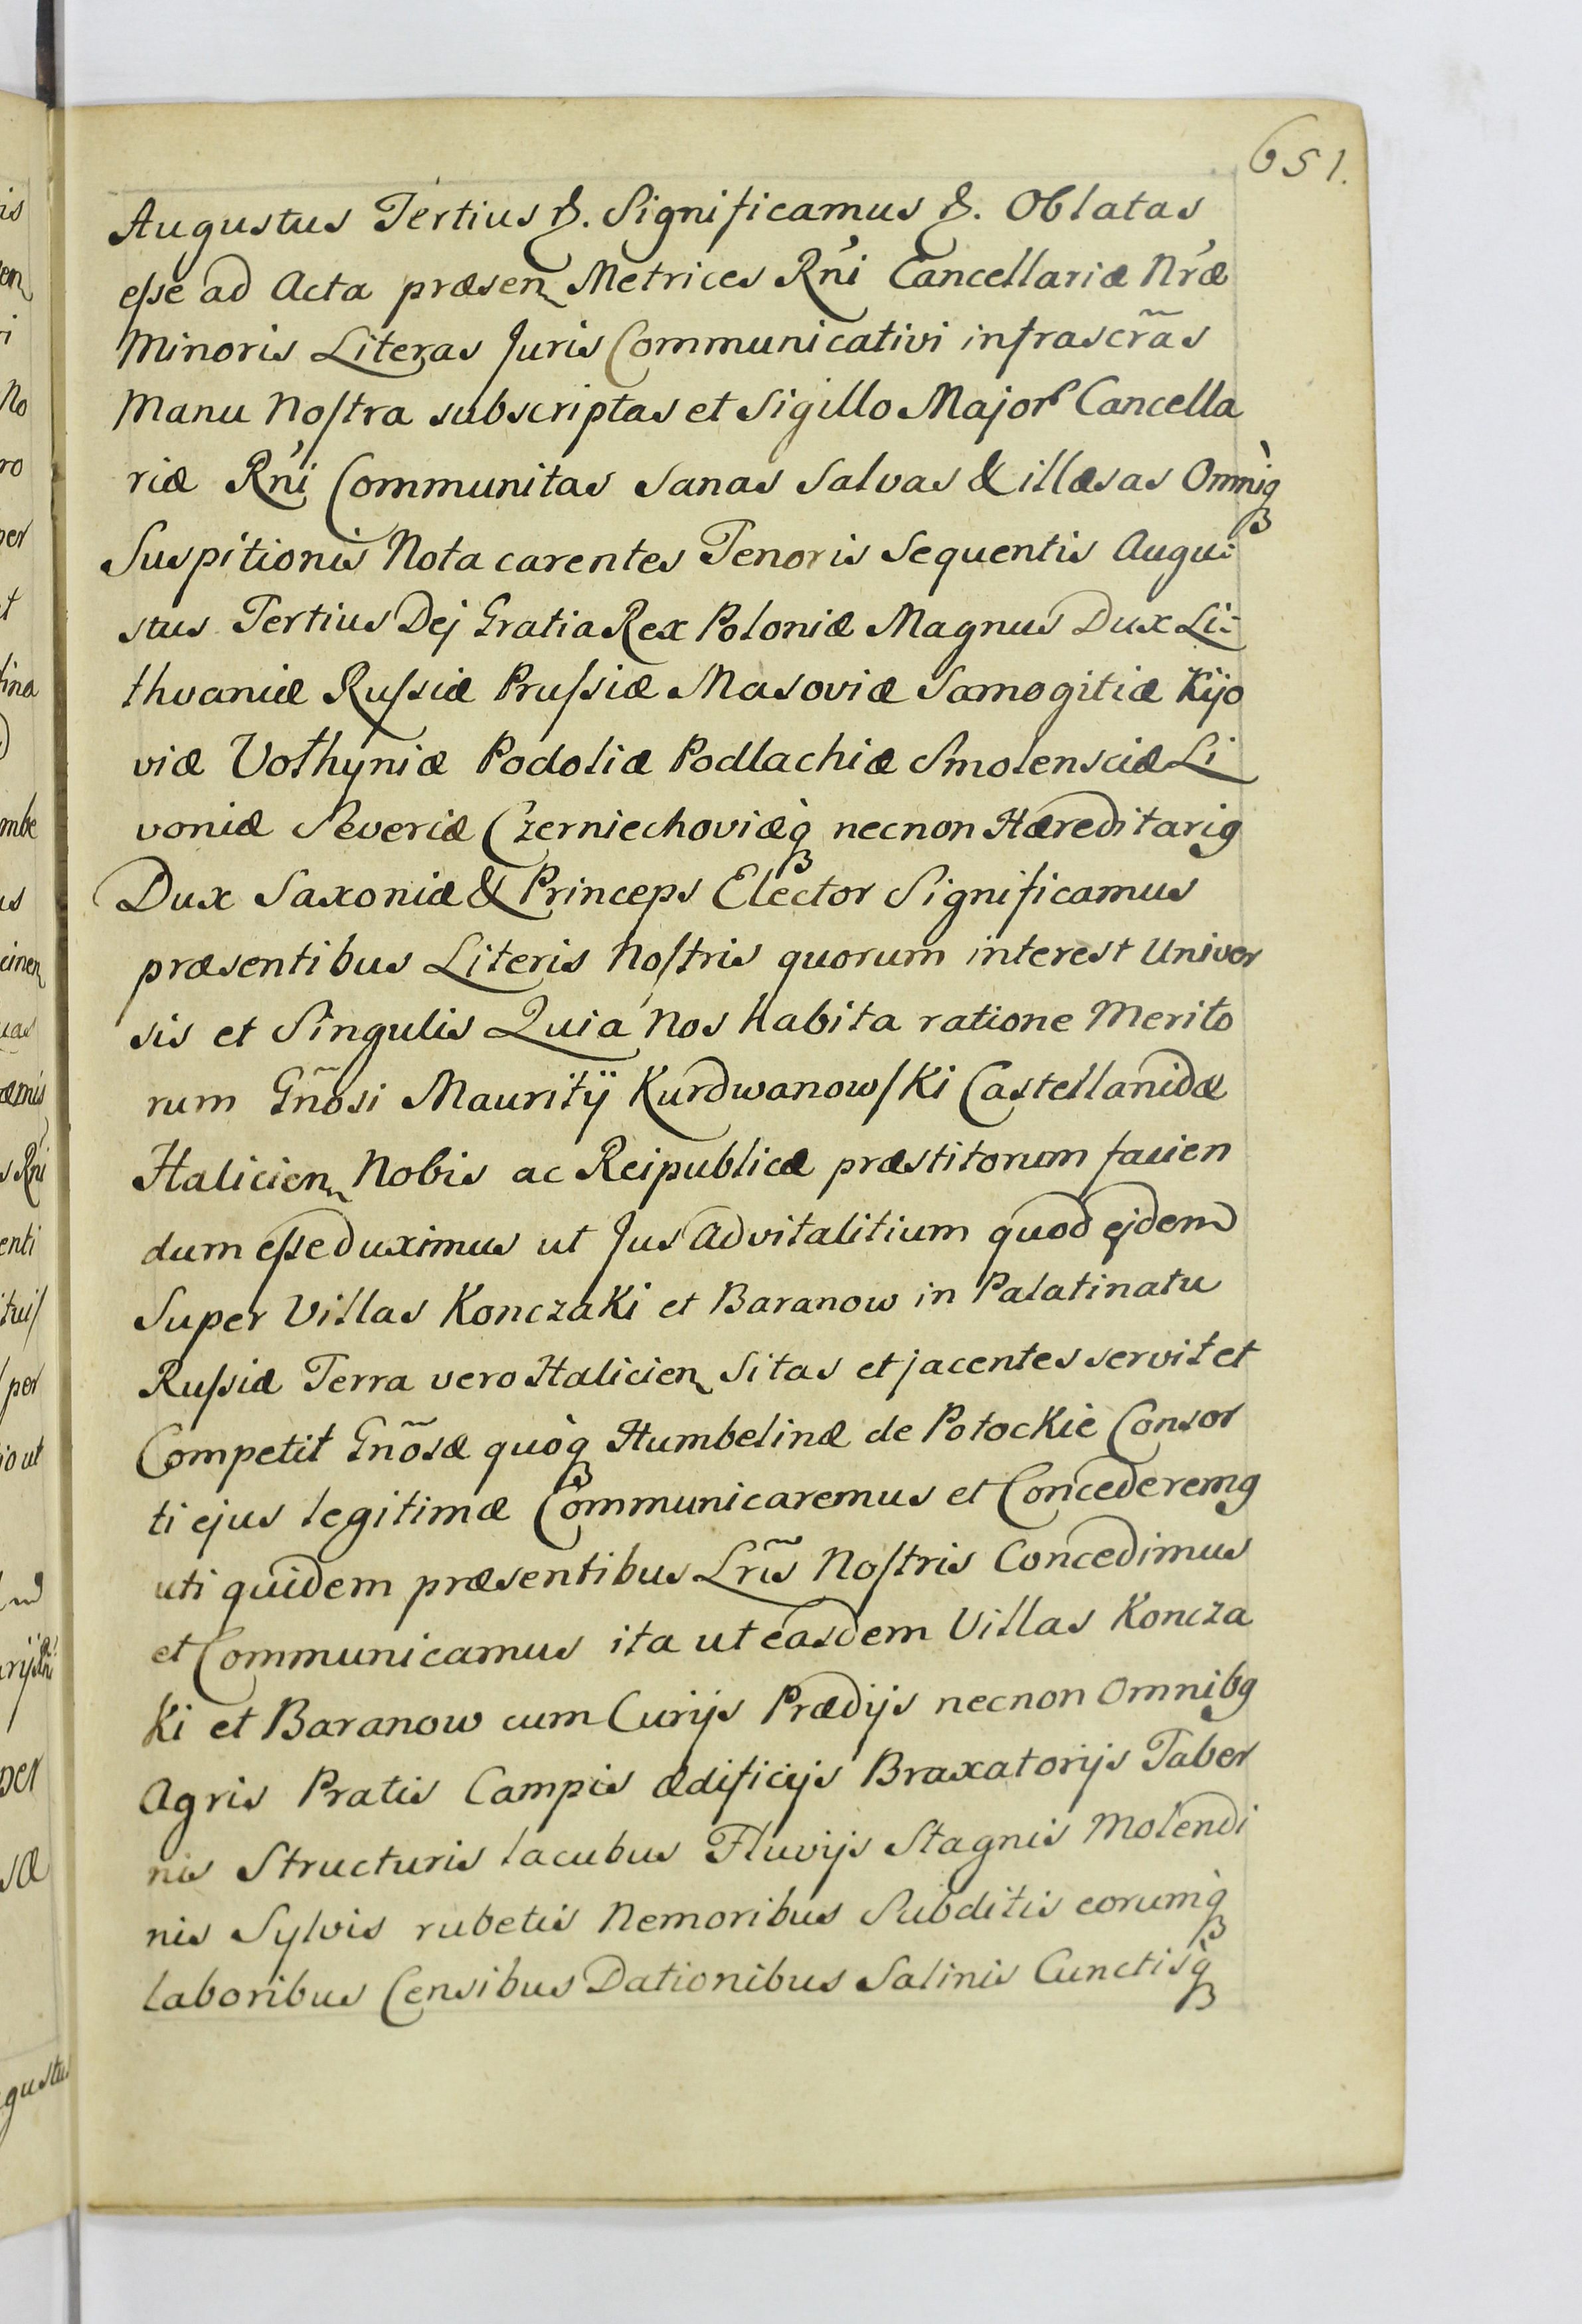 651.
Augustus Tertius &. Significamus &. Oblatas
eſse ad Acta præsen Metrices Rn̕i Cancellariæ Nr̕æ
Minoris Literas Juris Communicativi infrascr̃as
Manu Noſtra subscriptas et Sigillo Major Cancella
riæ Rn̕i Communitas Sanas Salvas & illæsas Omniq̀
Suspitionis Nota carentes Tenoris Sequentis Augu:
stus Tertius Dej Gratia Rex Poloniæ Magnus Dux Li:
thvaniæ Ruſsiæ Pruſsiæ Masoviæ Samogitiæ Kijo
viæ Volhyniæ Podoliæ Podlachiæ Smolensciæ Li
voniæ Severiæ Czerniechoviæq̀ necnon Hæreditarig
Dux Saxoniæ & Princeps Elector Significamus
præsentibus Literis Noſtris quorum interest Univer
sis et Singulis Quia Nos habita ratione Merito
rum Gñosi Mauritij Kurdwanowſki Castellanidæ
Halicien Nobis ac Reipublicæ præstitorum facien
dum eſse duximus ut Jus Advitalitium quod ejdem
Super Villas Konczaki et Baranow in Palatinatu
Ruſsiæ Terra vero Halicien Sitas et jacentes servit et
Competit Gñosæ quòq Humbelinæ de Potockie Consor
ti ejus legitimæ Communicaremus et Concederemg
uti quidem præsentibus Lr̃is Noſtris Concedimus
et Communicamus ita ut easdem Villas Koncza
ki et Baranow cum Curijs Prædijs necnon Omnibg
Agris Pratis Campis ædificijs Braxatorijs Taber
nis Structuris lacubus Fluvijs Stagnis Molendi
nis Sylvis rubetis Nemoribus Subditis eorumq̀
laboribus Censibus Dationibus Salinis Cunctisq̀